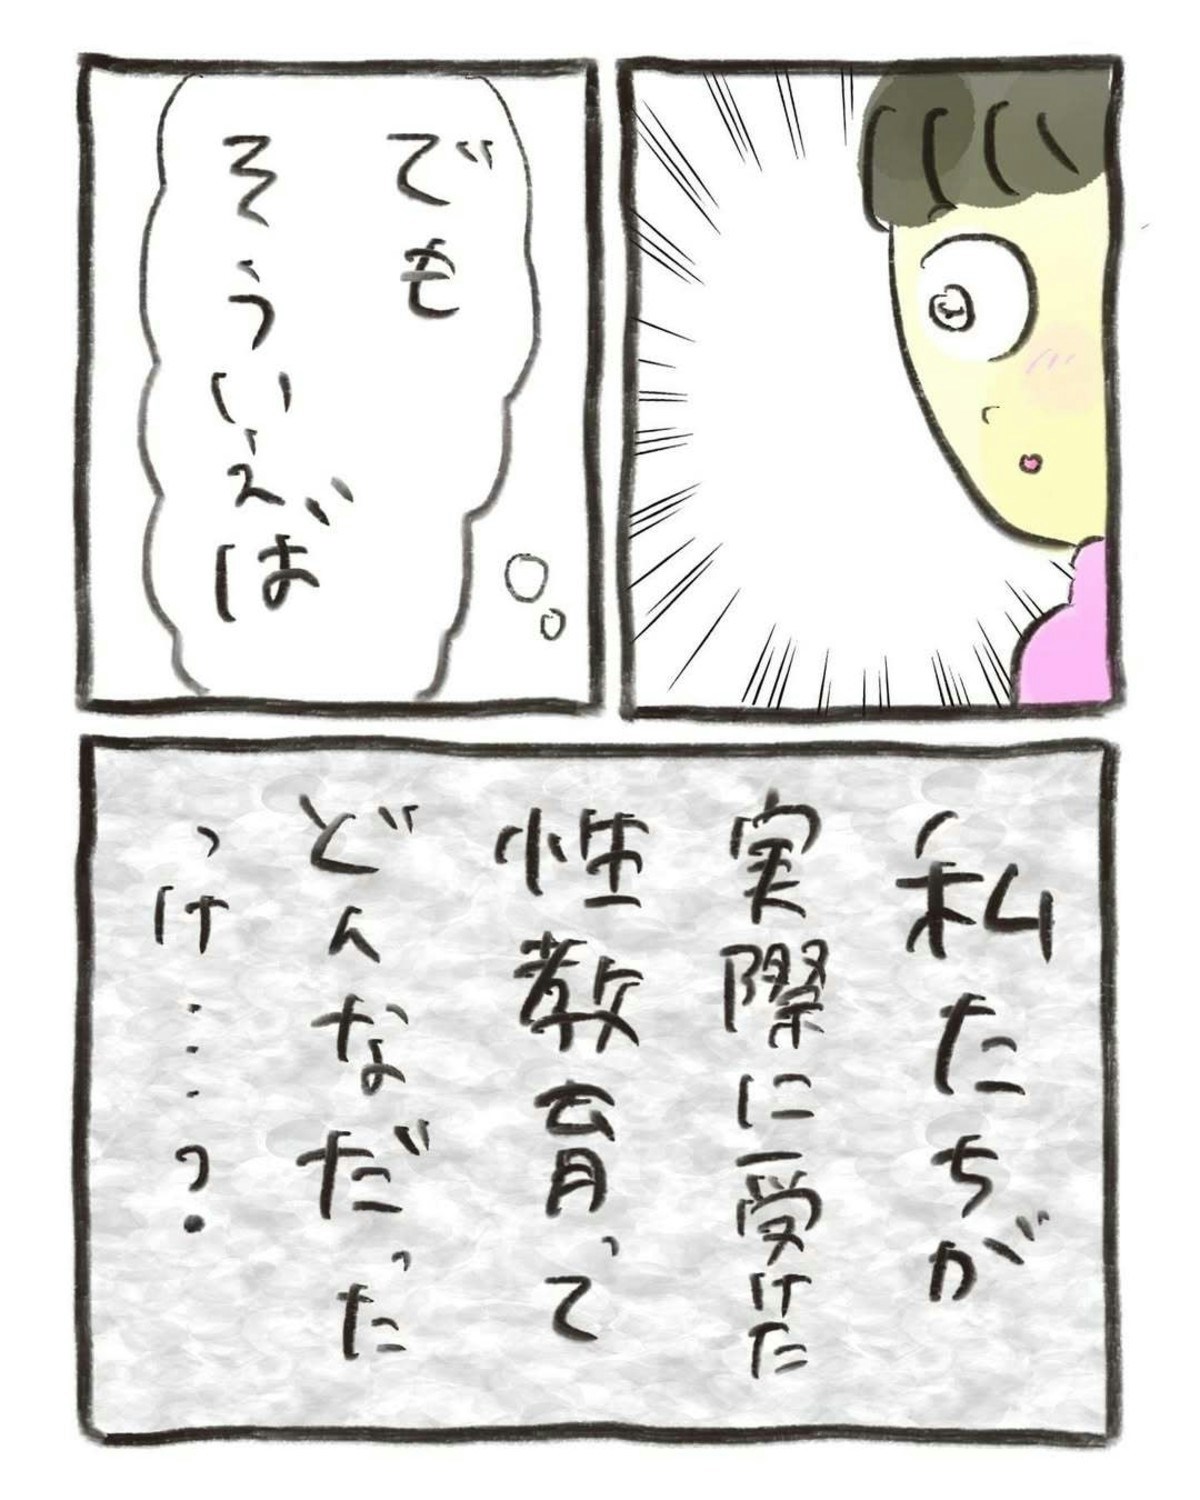 でも
そういえば
私たちが
実際に受けた
性教育って
どんなだった
っけ……?